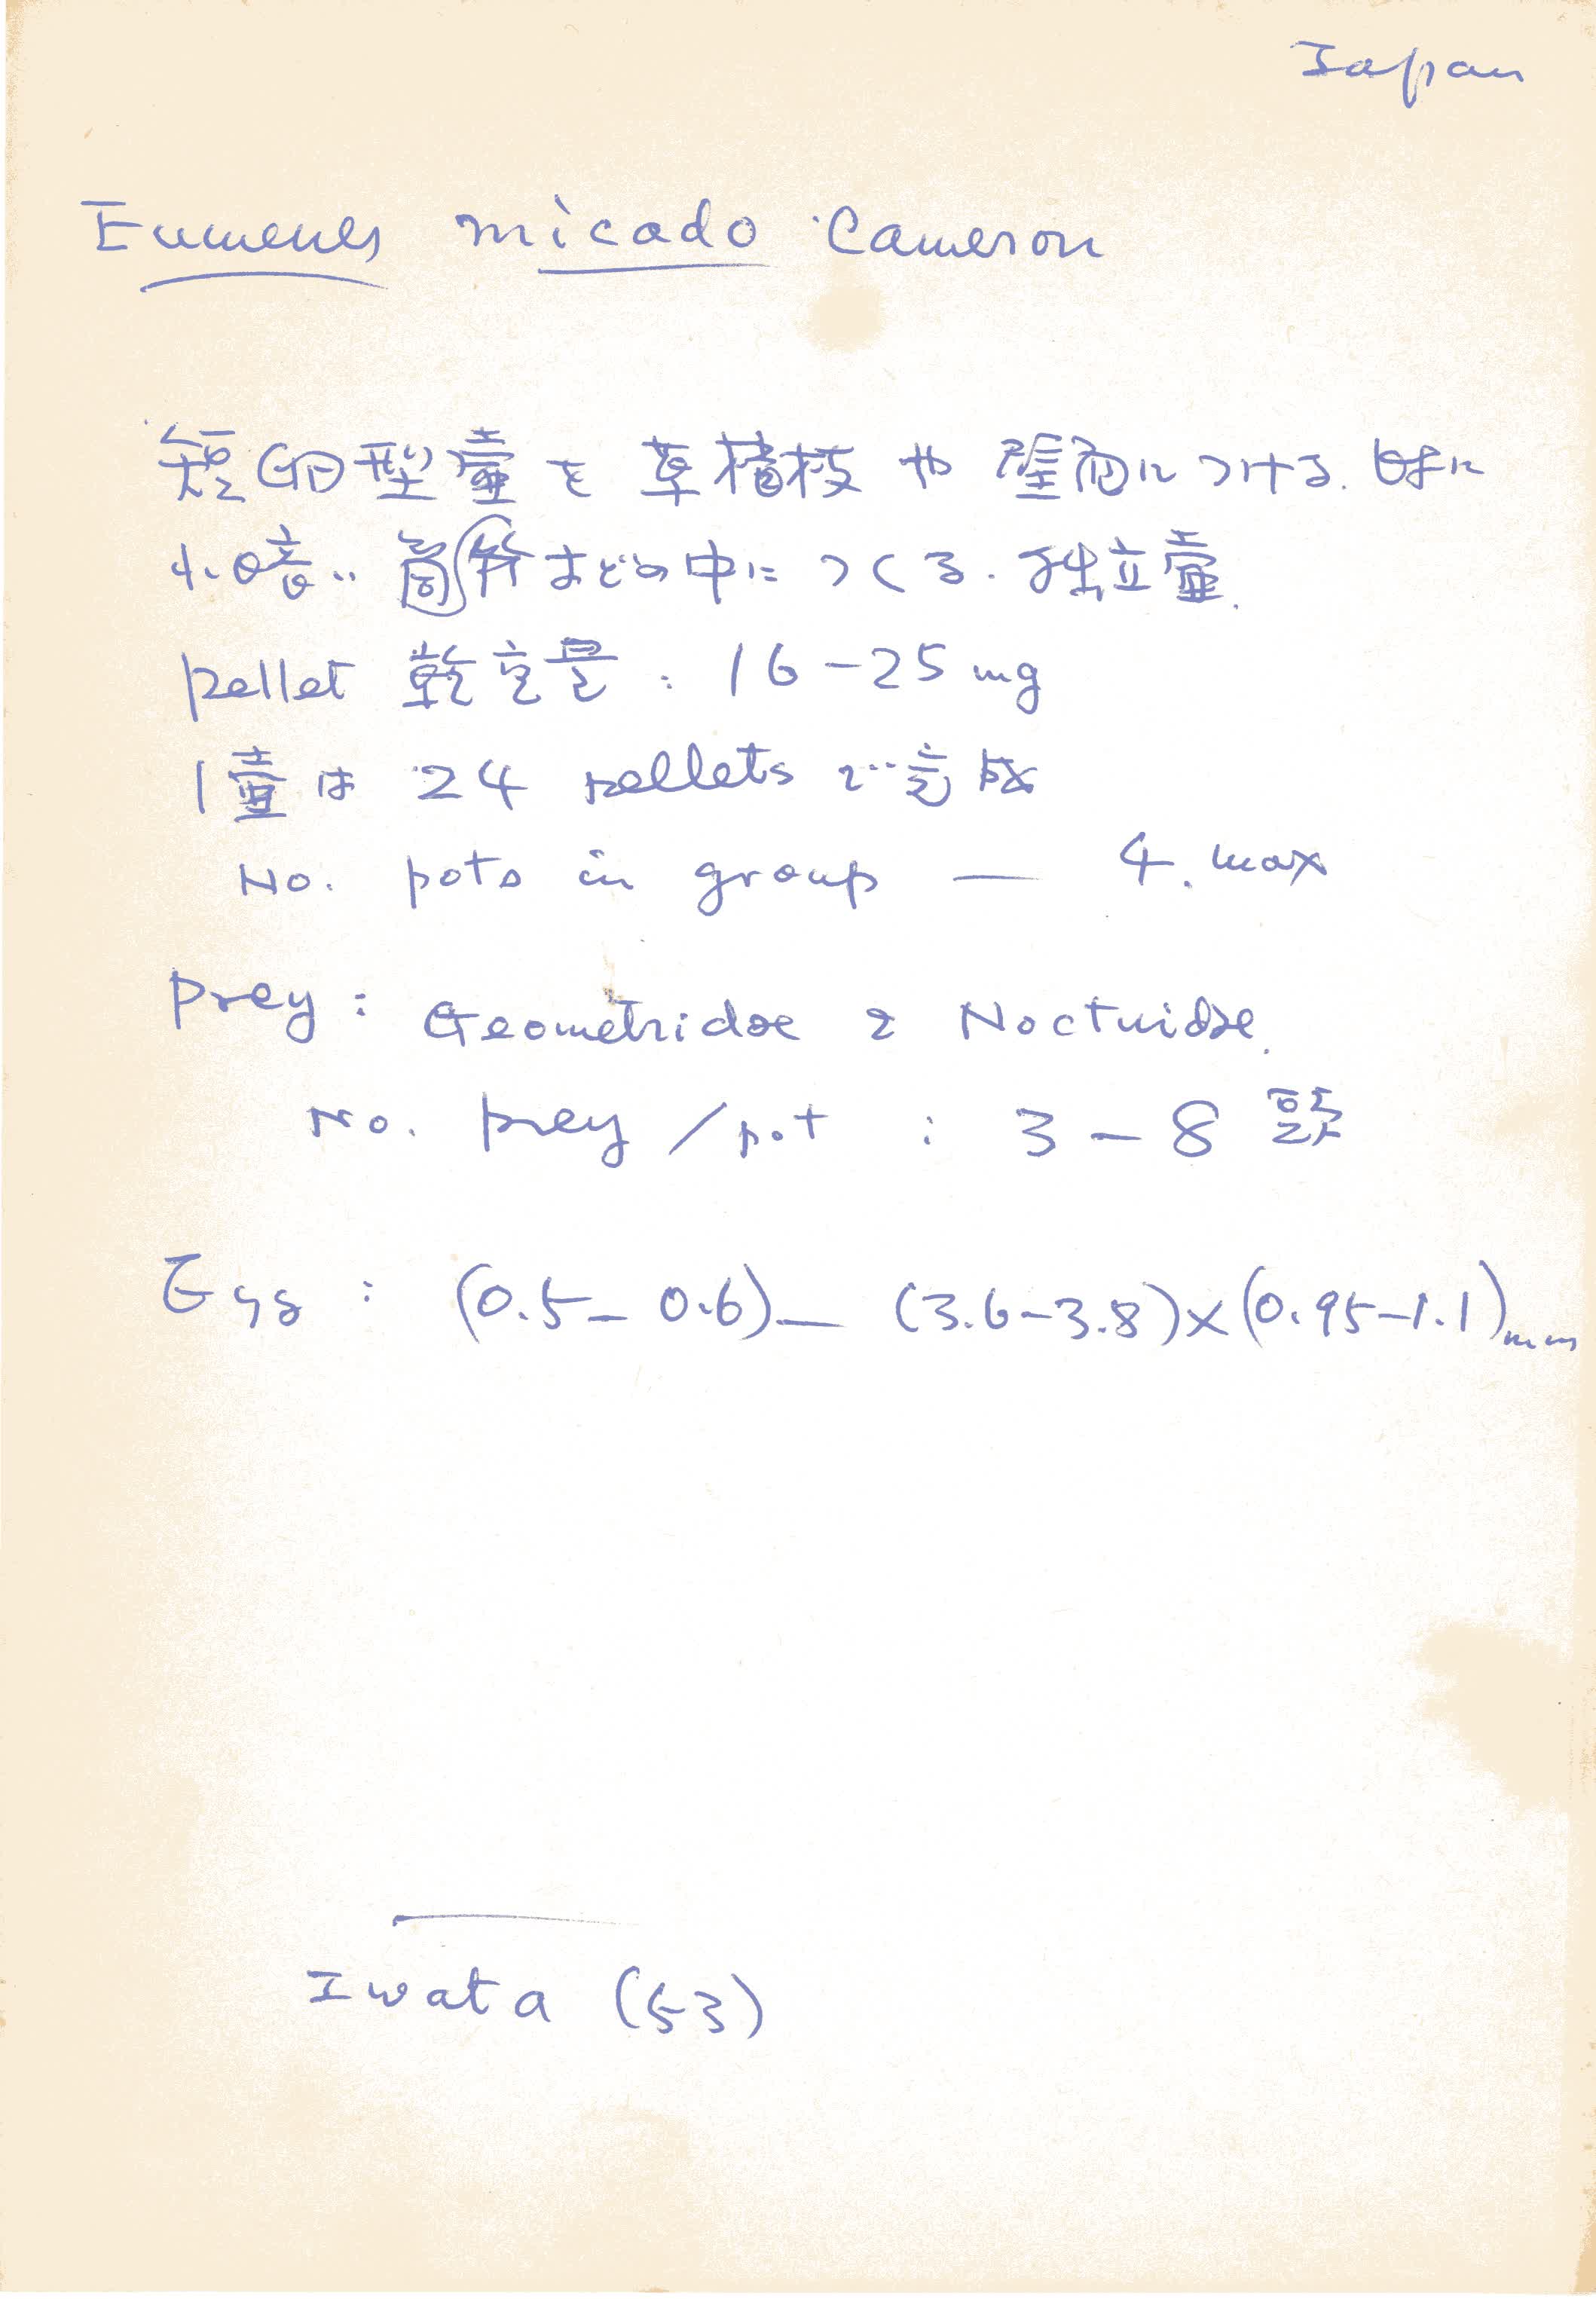 Japan
Eumenes micado Cameron
短卵型壷を草樹枝や壁面につける. 時に
小暗い筒などの中につくる. 独立壷.
pellet 乾重量 : 16-25 mg
1壷は 24 pellets で完成
No. pots in group — 4. max
Prey : Geometridae & Noctuidae.
No. prey / pot : 3-8 頭
Egg : (0.5-0.6) — (3.6-3.8)×(0.95-1.1) mm
Iwata (53)